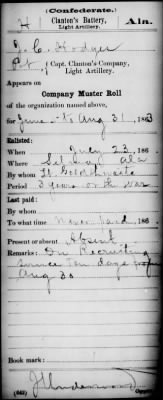 (Confederate.)
H Clanton's Battery, Ala.
Light Artillery.
J. C. Hodges
Pvt, Capt. Clanton's Company,
Light Artillery.
Appears on
Company Muster Roll
of the organization named above,
for June to Aug 31, 1863
Enlisted:
When July 23, 186
Where Selma, Ala
By whom
Period 3 years or the war
Last paid:
By whom
To what time Never paid, 186
Present or absent Absent
Remarks: On Recruiting
service ten days from
Aug 30
Book mark:
J Underwood
(642) Copyist.